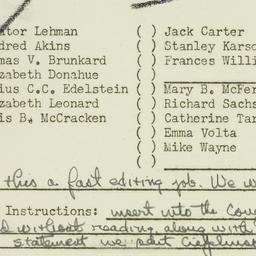 ator Lehman ( ) Jack Carter
dred Akins ( ) Stanley Karso
mas V. Brunkard ( ) Frances Willi
zabeth Donahue ( )
ius C.C. Edelstein ( ) Mary B. McFer
zabeth Leonard ( ) Richard Sachs
is B. McCracken ( ) Catherine Tar
( ) Emma Volta
( ) Mike Wayne
( )
this a fast editing job. We w
Instructions: insert into the Cong
d without reading, along with
statement we sent